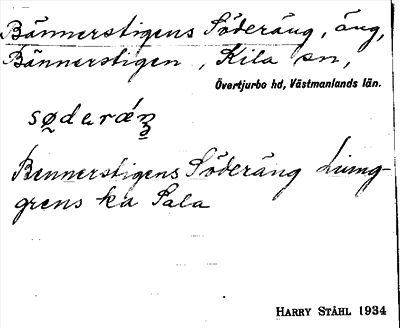 Bännerstigens Söderäng, äng,
Bännerstigen, Kila sn,
Övertjurbo hd, Västmanlands län.
sø̰daræ´ŋ
Bennerstigens Söderäng Ljung-
grens ka Sala
HARRY STÅHL 1934